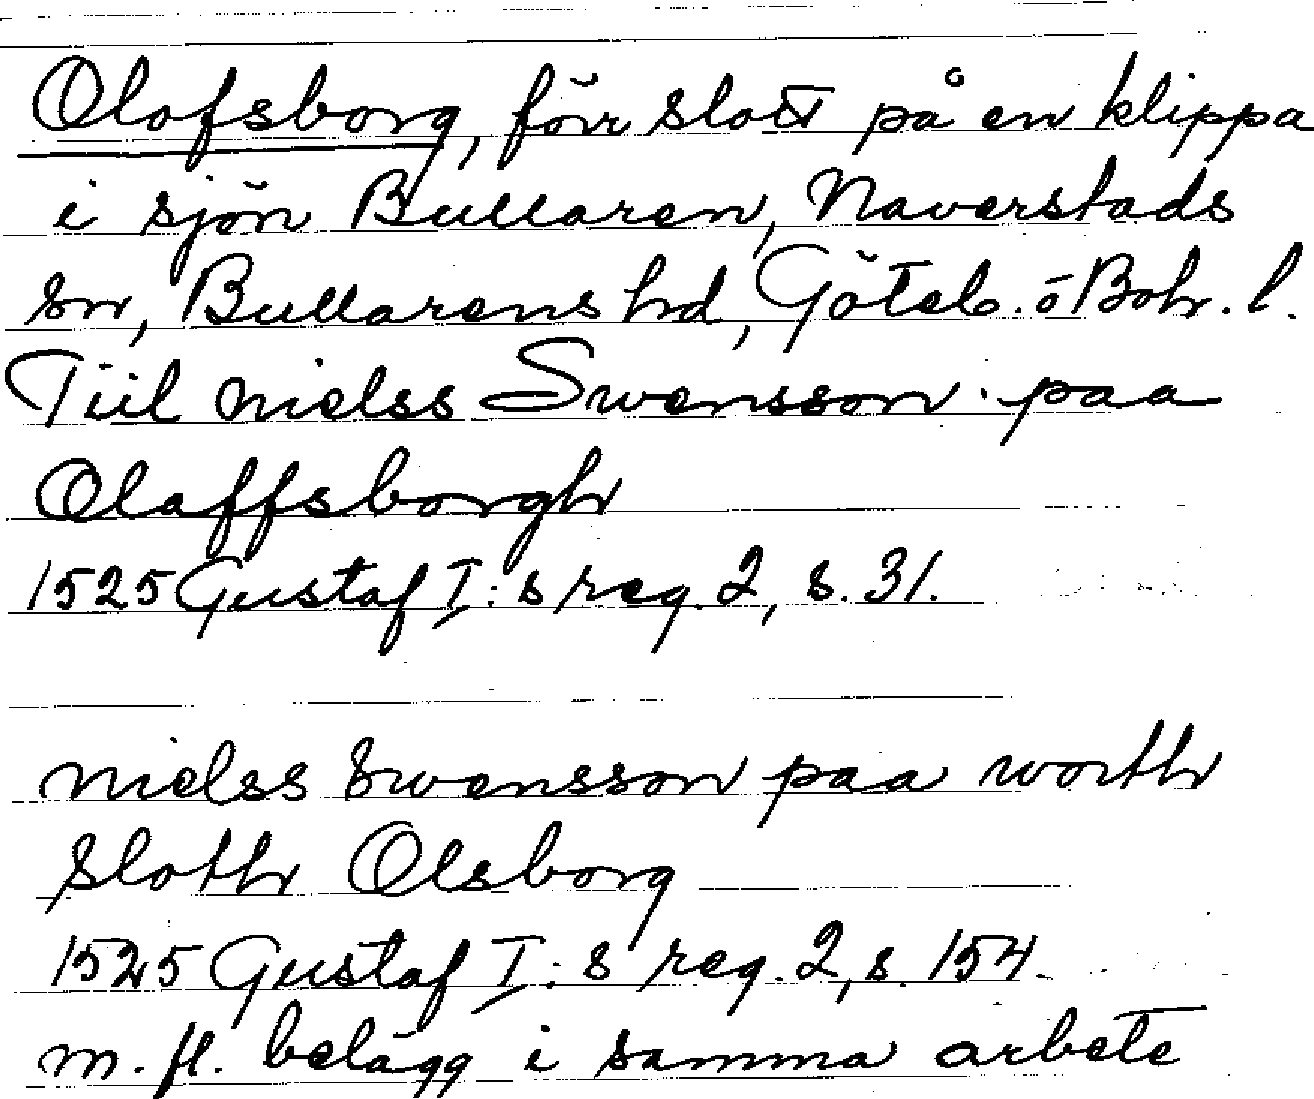 Olofsborg, förr slott på en klippa
i sjön Bullaren, Naverstads
sn, Bullarens hd, Göteb. o Boh. l.
Tiil nielss Swensson paa
Olaffsborgh
1525 Gustaf I: s reg. 2, s. 31.
nielss Swensson paa worth
sloth Olsborg
1525 Gustaf I: s reg. 2, s. 154.
m. fl. belägg i samma arbete